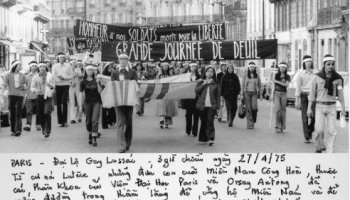 HONNEUR à nos SOLDATS morts pour la LIBERTÉ
GRANDE JOURNÉE DE DEUIL
PARIS - Đại Lộ Gay Lussac, 3 giờ chiều ngày 27/4/75
Từ cư xá Lutèce, những đứa con của Miền Nam Cộng Hòa, thuộc
các phân khoa của Viện Đại Học Paris và Orsay Antony đã
xuống đường trong thầm lặng để ủng hộ Miền Nam và để